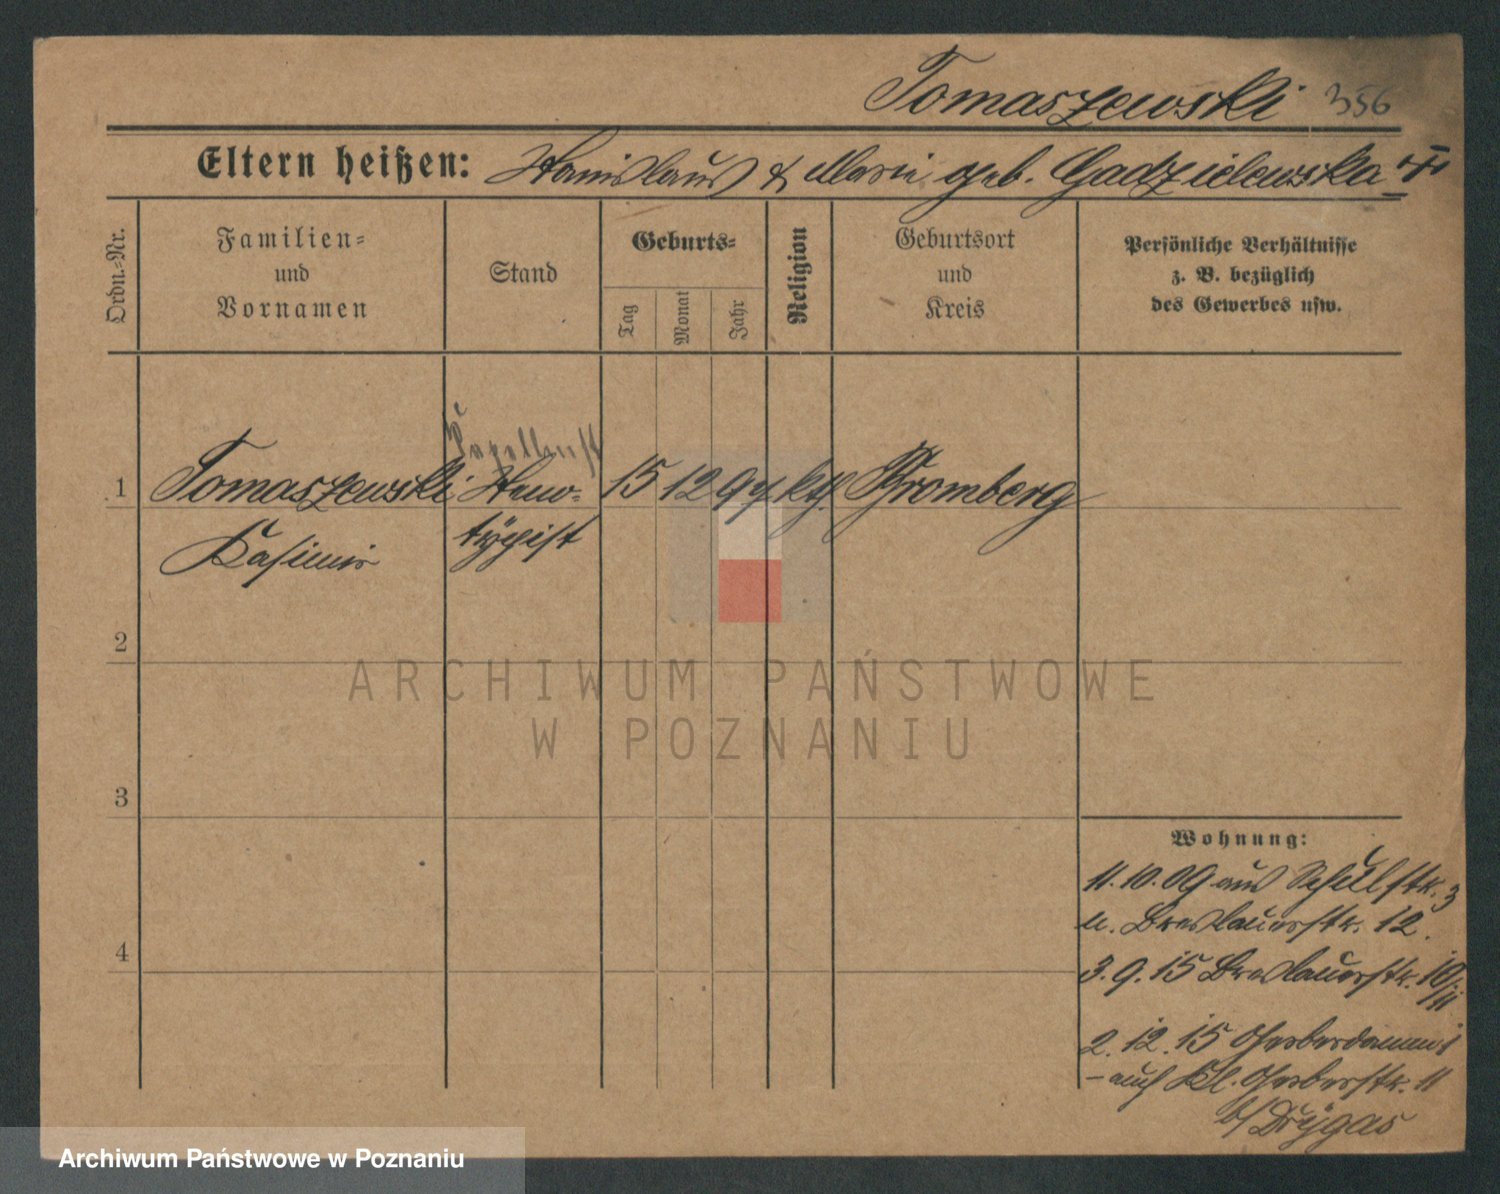 Tomaszewski 356
Eltern heißen: Stanislaus & Marie geb. Gadzielewska
Ordn.-Nr.
Familien-
und
Vornamen
Stand
Geburts-
Tag
Monat
Jahr
Religion
Geburtsort
und
Kreis
Persönliche Verhältnisse
z. B. bezüglich
des Gewerbes usw.
1 Tomaszewski Steno- 15 12 94 kth. Bromberg
Kasimir typist
2
3
4
Wohnung:
11.10.09 aus Schulstr. 3
n. Breslauerstr. 12.
3.9.15 Breslauerstr. 10/11
2.12.15 Gerberdamm 1
- auch Kl. Gerberstr. 11
b/ Drÿgas
ARCHIWUM PAŃSTWOWE
W POZNANIU
Archiwum Państwowe w Poznaniu